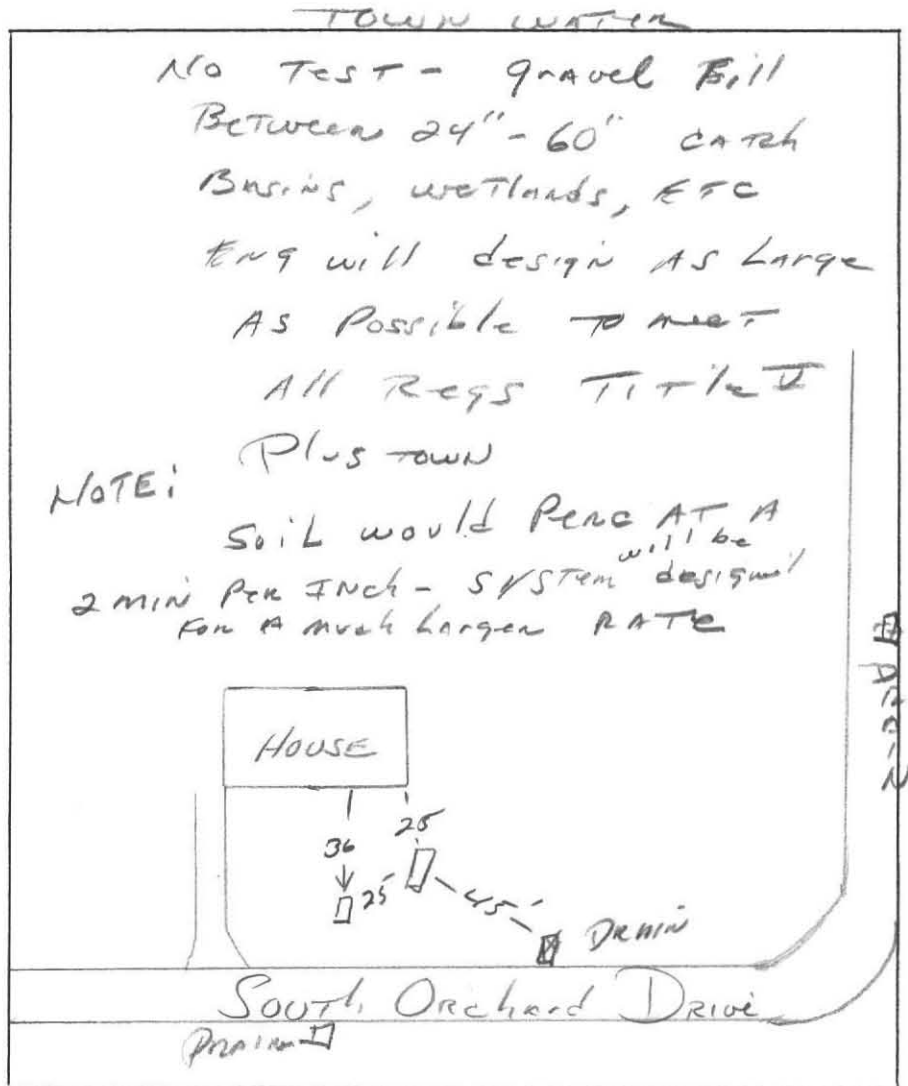 TOWN WATER
NO TEST - gravel Fill
Between 24" - 60" CATCH
Basins, wetlands, ETC
Eng will design As Large
As Possible To meet
All Regs Title V
Plus town
NOTE:
Soil would Perc AT A
2 min Per Inch - System will be designed
For A much Larger RATE
HOUSE
25
36
25
45'
DRAIN
DRAIN
South Orchard Drive
DRAIN